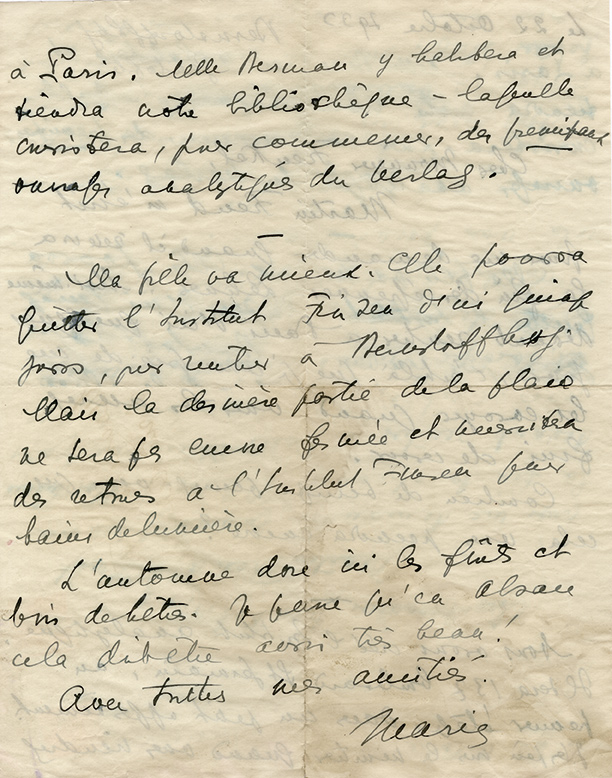 à Paris. Melle Berman y habitera et
tiendra notre bibliothèque – laquelle
consistera, pour commencer, des principaux
ouvrages analytiques du Verlag.
Ma fille va mieux. Elle pourra
quitter l'Institut Finsen d'ici quinze
jours, pour rentrer à Bernstorffhøj
Mais la dernière partie de la plaie
ne sera pas encore fermée et nécessitera
des retours à l'Institut Finsen pour
bains de lumière.
L'automne dore ici les forêts et
bois de hêtres. Je pense qu'en Alsace
cela doit être aussi très beau!
Avec toutes mes amitiés.
Marie